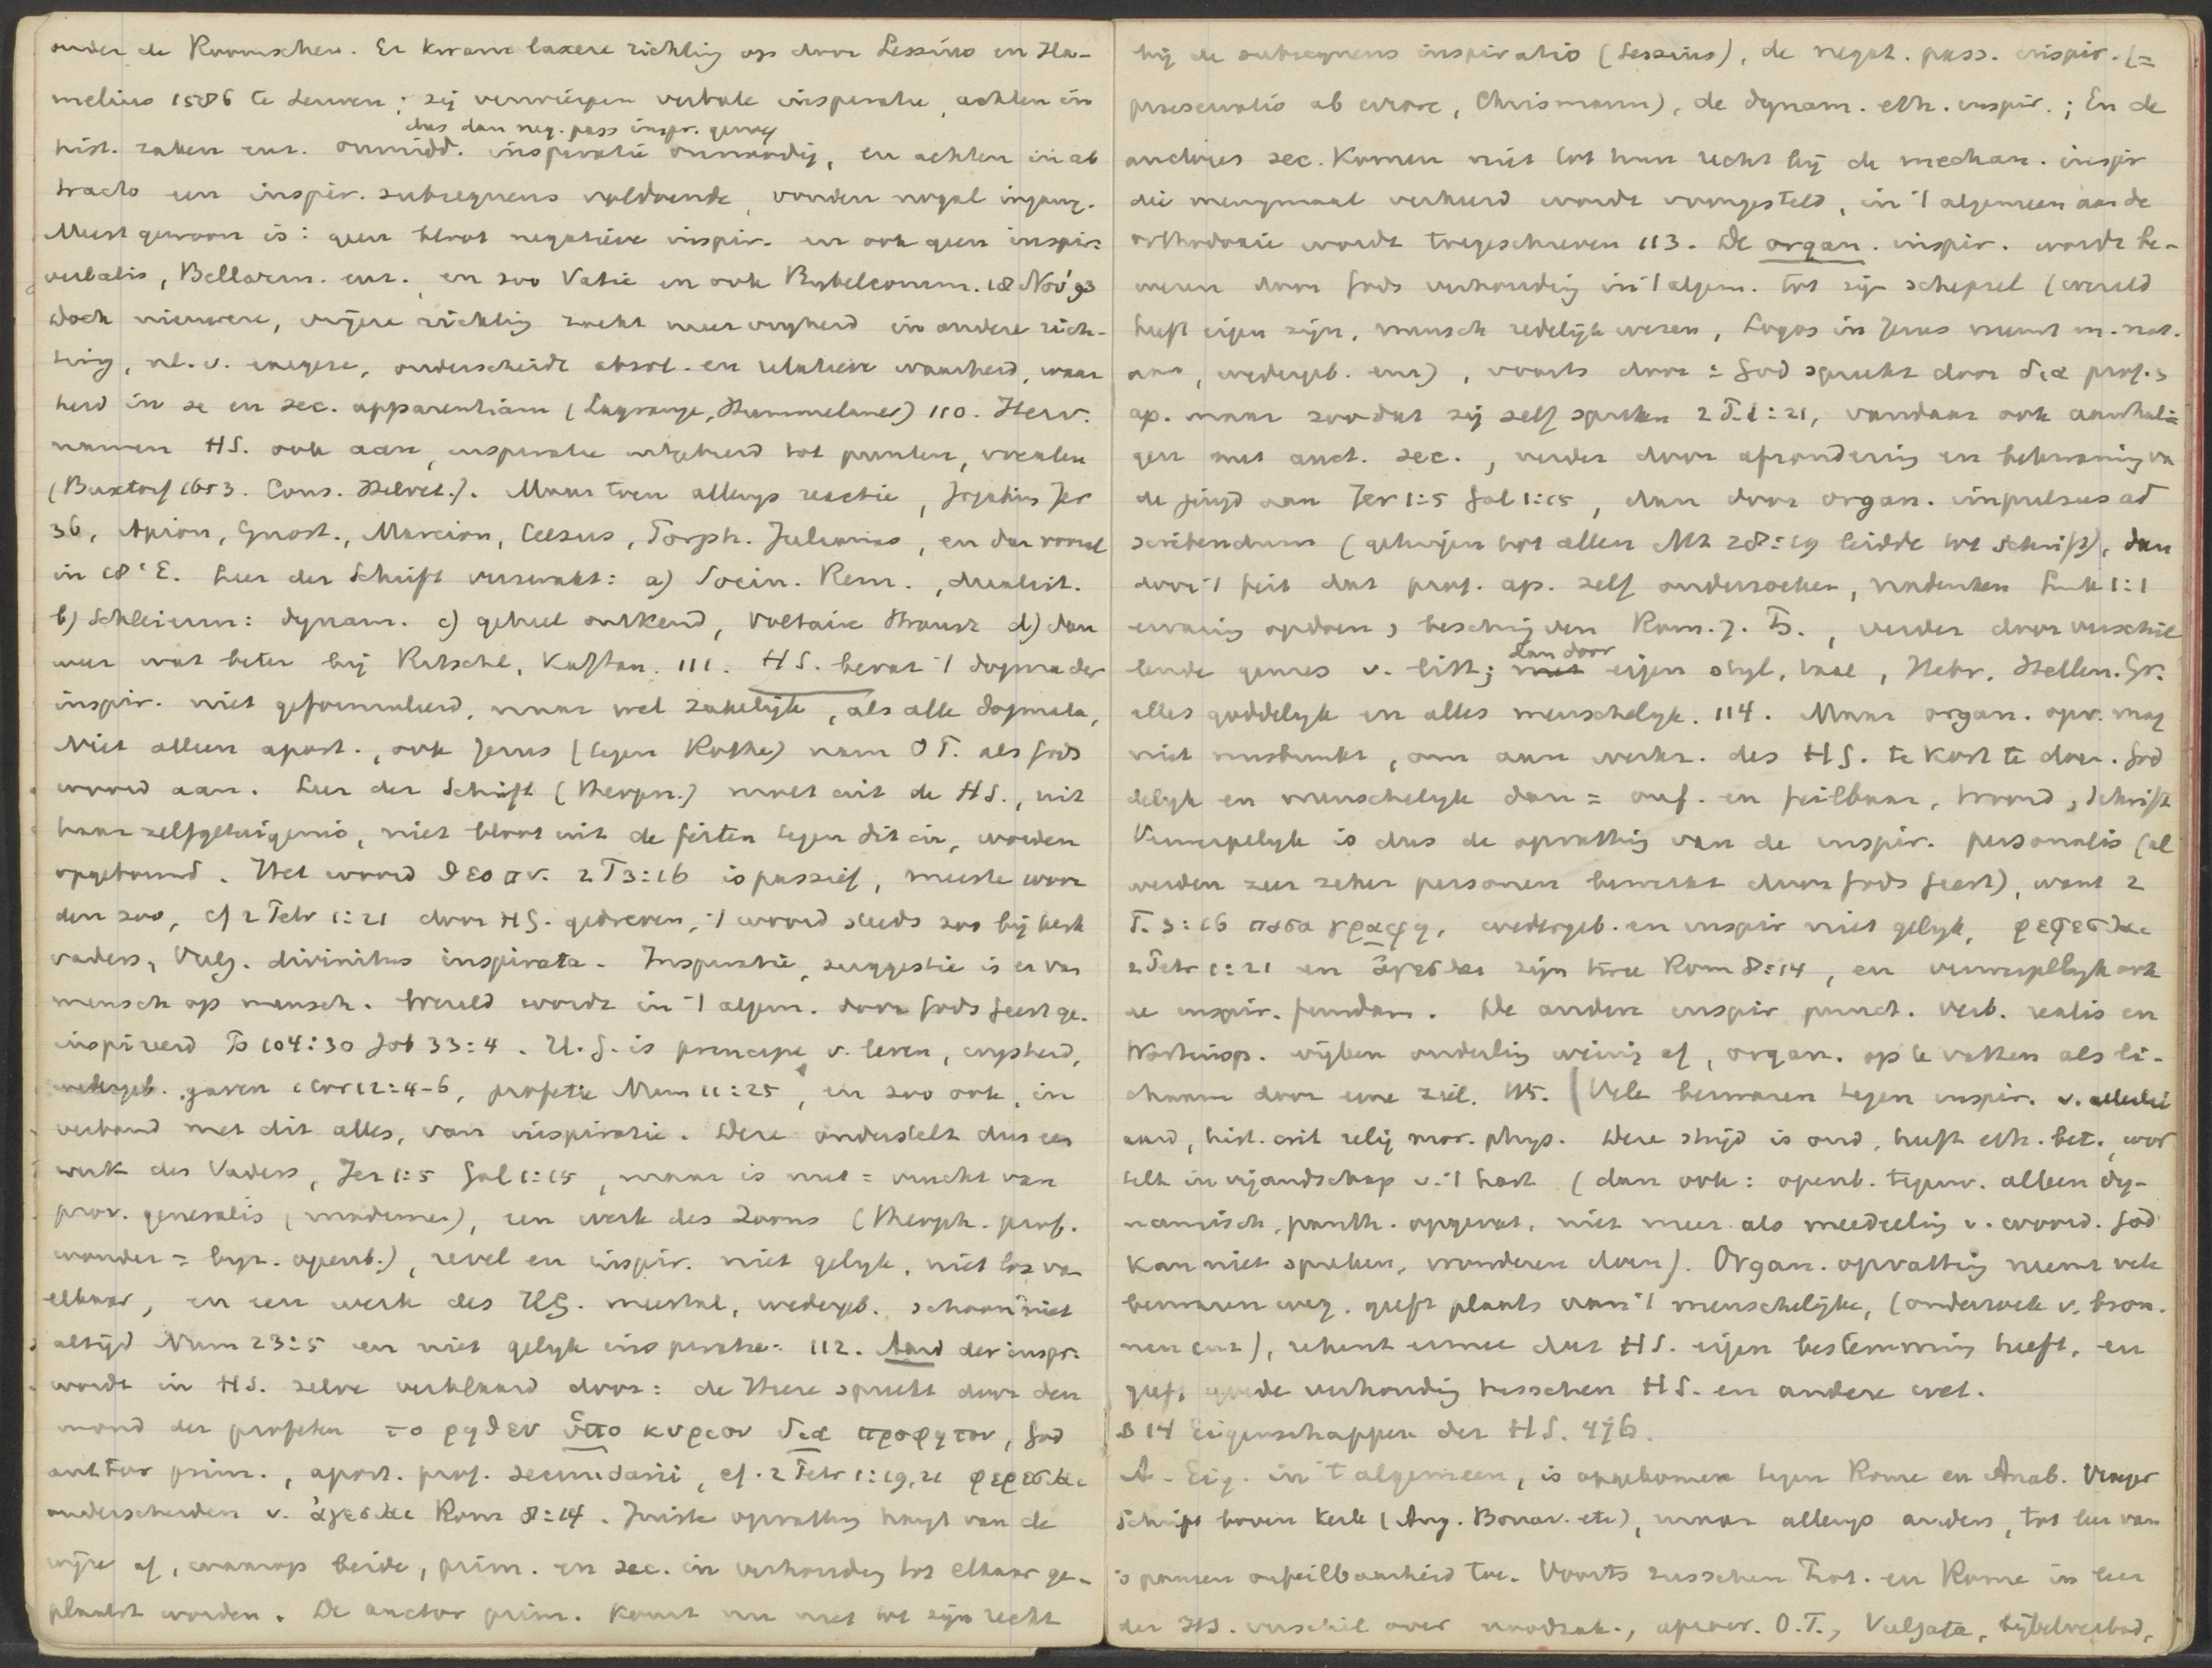 onder de Roomschen. Er kwam laxere richting op door Lessius en Ha-
melius 1586 te Leuven; zij verwierpen verbale inspiratie, achten in
dus dan neg. pass inspir. genoeg
hist. zaken enz. onmidd. inspiratie onnoodig, en achten in ab
tracto een inspir. subsequens voldoende, vonden nogal ingang.
Meest gewoon is: geen bloot negatieve inspir. en ook geen inspir.
verbalis, Bellarm. enz., en zoo Vatic en ook Bybelcomm. 18 Nov '93
Doch nieuwere, vrijere richting zoekt meer vryheid in andere rich-
ting, nl. v. exegese, onderscheidt absol. en relatieve waarheid, waar
heid in se en sec. apparentiam (Lagrange, Hummelauer) 110. Herv.
namen HS. ook aan, inspiratie uitgebreid tot punten, vocalen
(Buxtorf 1653. Cons. Helvet.). Maar toen allengs reactie, Jojakim Jer
36, Apion, Gnost., Marcion, Celsus, Porph. Julianus, en dan vooral
in 18e E. Leer der Schrift verzwakt: a) Socin. Rem., dualist.
b) Schleierm: dynam. c) geheel ontkend, Voltaire Strausz d) dan
weer wat beter bij Ritschl, Kaftan. 111. HS. bevat 't dogma der
inspir. niet geformuleerd, maar wel zakelijk, als alle dogmata,
Niet alleen apost., ook Jezus (tegen Rothe) nam OT. als Gods
woord aan. Leer der Schrift (theopn.) moet uit de HS., uit
haar zelfgetuigenis, niet bloot uit de feiten tegen dit in, worden
opgebouwd. Het woord θεοπν. 2 T 3:16 is passief, meeste woor
den zoo, cf 2 Petr 1:21 door HG. gedreven, 't woord steeds zoo bij kerk
vaders, Vulg. divinitus inspirata. Inspiratie, suggestie is er van
mensch op mensch. Wereld wordt in 't algem. door Gods Geest ge-
inspireerd Ps 104:30 Job 33:4. H.G. is principe v. leven, wysheid,
wedergeb. gaven 1 Cor 12:4-6, profetie Num 11:25, en zoo ook, in
verband met dit alles, van inspiratie. Deze onderstelt dus een
werk des Vaders, Jer 1:5 Gal 1:15, maar is niet = vrucht van
prov. generalis (modernen), een werk des Zoons (theoph. prof.
wonder = byz. openb.), revel en inspir. niet gelyk, niet los van
elkaar, en een werk des HG. meestal, wedergeb. schoon niet
altijd Num 23:5 en niet gelyk inspiratie. 112. Aard der inspir.
wordt in HS. zelve verklaard door: de Heere spreekt door den
mond der profeten το ρηθεν ὑπο κυριου δια προφητου, God
auctor prim., apost. prof. secundarii, cf. 2 Petr 1:19,21 φερεσθαι
onderscheiden v. ἀγεσθαι Rom 8:14. Juiste opvatting hangt van de
wijze af, waarop beide, prim. en sec. in verhouding tot elkaar ge-
plaatst worden. De auctor prim. komt nu niet tot zijn recht
bij de subsequens inspiratio (Lessius), de negat. pass. inspir. (=
preservatio ab errore, Chrismann), de dynam. eth. inspir.; En de
auctores sec. komen niet tot hun recht bij de mechan. inspir
die menigmaal verkeerd wordt voorgesteld, in 't algemeen aan de
orthodoxie wordt toegeschreven 113. De organ. inspir. wordt be-
wezen door Gods verhouding in 't algem. tot zijn schepsel (wereld
heeft eigen zijn, mensch redelijk wezen, Logos in Jezus neemt m. nat.
aan, wedergeb. enz), voorts door = God spreekt door δια prof. &
ap. maar zoo dat zij zelf spreken 2 P. 1:21, vandaar ook aanhalin-
gen met auct. sec., verder door afzondering en bekwaming van
de jeugd aan Jer 1:5 Gal 1:15, dan door organ. impulsus ad
scribendum (getuigen tot allen Mt 28:19 leidde tot Schrift), dan
door 't feit dat prof. ap. zelf onderzoeken, nadenken Luk 1:1
ervaring opdoen & beschrijven Rom. 7. Ps., verder door verschil
lende genres v. litt; dan door eigen styl, taal, Hebr. Hellen. Gr.
alles goddelyk en alles menschelyk. 114. Maar organ. opv. mag
niet misbruikt, om aan werkz. des HG. te kort te doen. God
delyk en menschelyk dan = onf. en feilbaar, woord, Schrift
Verwerpelyk is dus de opvatting van de inspir. personalis (al
werden zeer zeker personen bewerkt door Gods Geest), want 2
T. 3:16 πασα γραφη, wedergeb. en inspir niet gelyk, φερεσθαι
2 Petr 1:21 en ἀγεσθαι zijn twee Rom 8:14, en verwerpelyk ook
de inspir. fundam. De andere inspir punct. verb. realis en
Wortinsp. wijken onderling weinig af, organ. op te vatten als li-
chaam door eene ziel. 115. Vele bezwaren tegen inspir. v. allerlei
aard, hist. crit relig mor. phys. Deze strijd is oud, heeft eth. bet., wor
telt in vijandschap v. 't hart (dan ook: openb. tegenw. alleen dy-
namisch, panth. opgevat, niet meer als meedeeling v. woord. God
kan niet spreken, wonderen doen). Organ. opvatting neemt vele
bezwaren weg, geeft plaats aan 't menschelijke, (onderzoek v. bron-
nen enz), rekent ermee dat HS. eigen bestemming heeft, en
geeft goede verhouding tusschen HS. en andere wet.
§ 14 Eigenschappen der HS. 476.
A. Eig. in 't algemeen, is opgekomen tegen Rome en Anab. Vroeger
Schrift boven Kerk (Aug. Bonav. etc), maar allengs anders, tot leer van
's pausen onfeilbaarheid toe. Voorts tusschen Prot. en Rome in leer
der HS. verschil over noodzak., apocr. O.T., Vulgata, bijbelverbod,